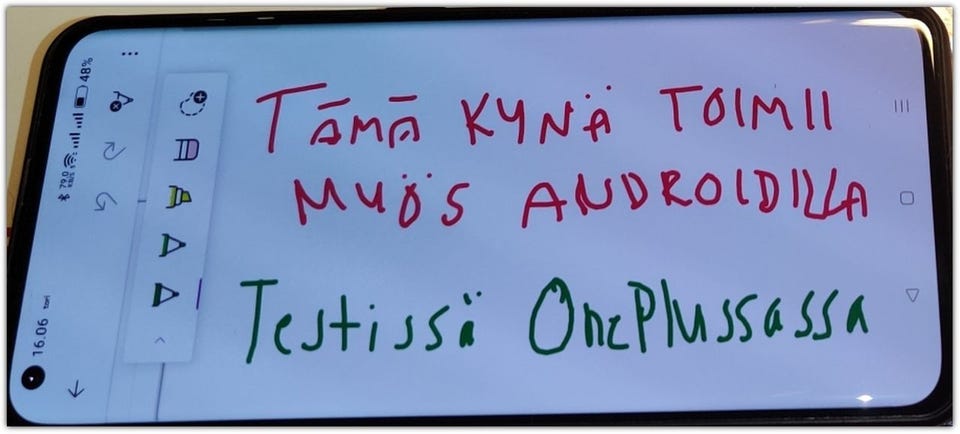 TÄMÄ KYNÄ TOIMII
MYÖS ANDROIDILLA
Testissä OnePlussassa
48%
79.0
KB/S
16.06 tori